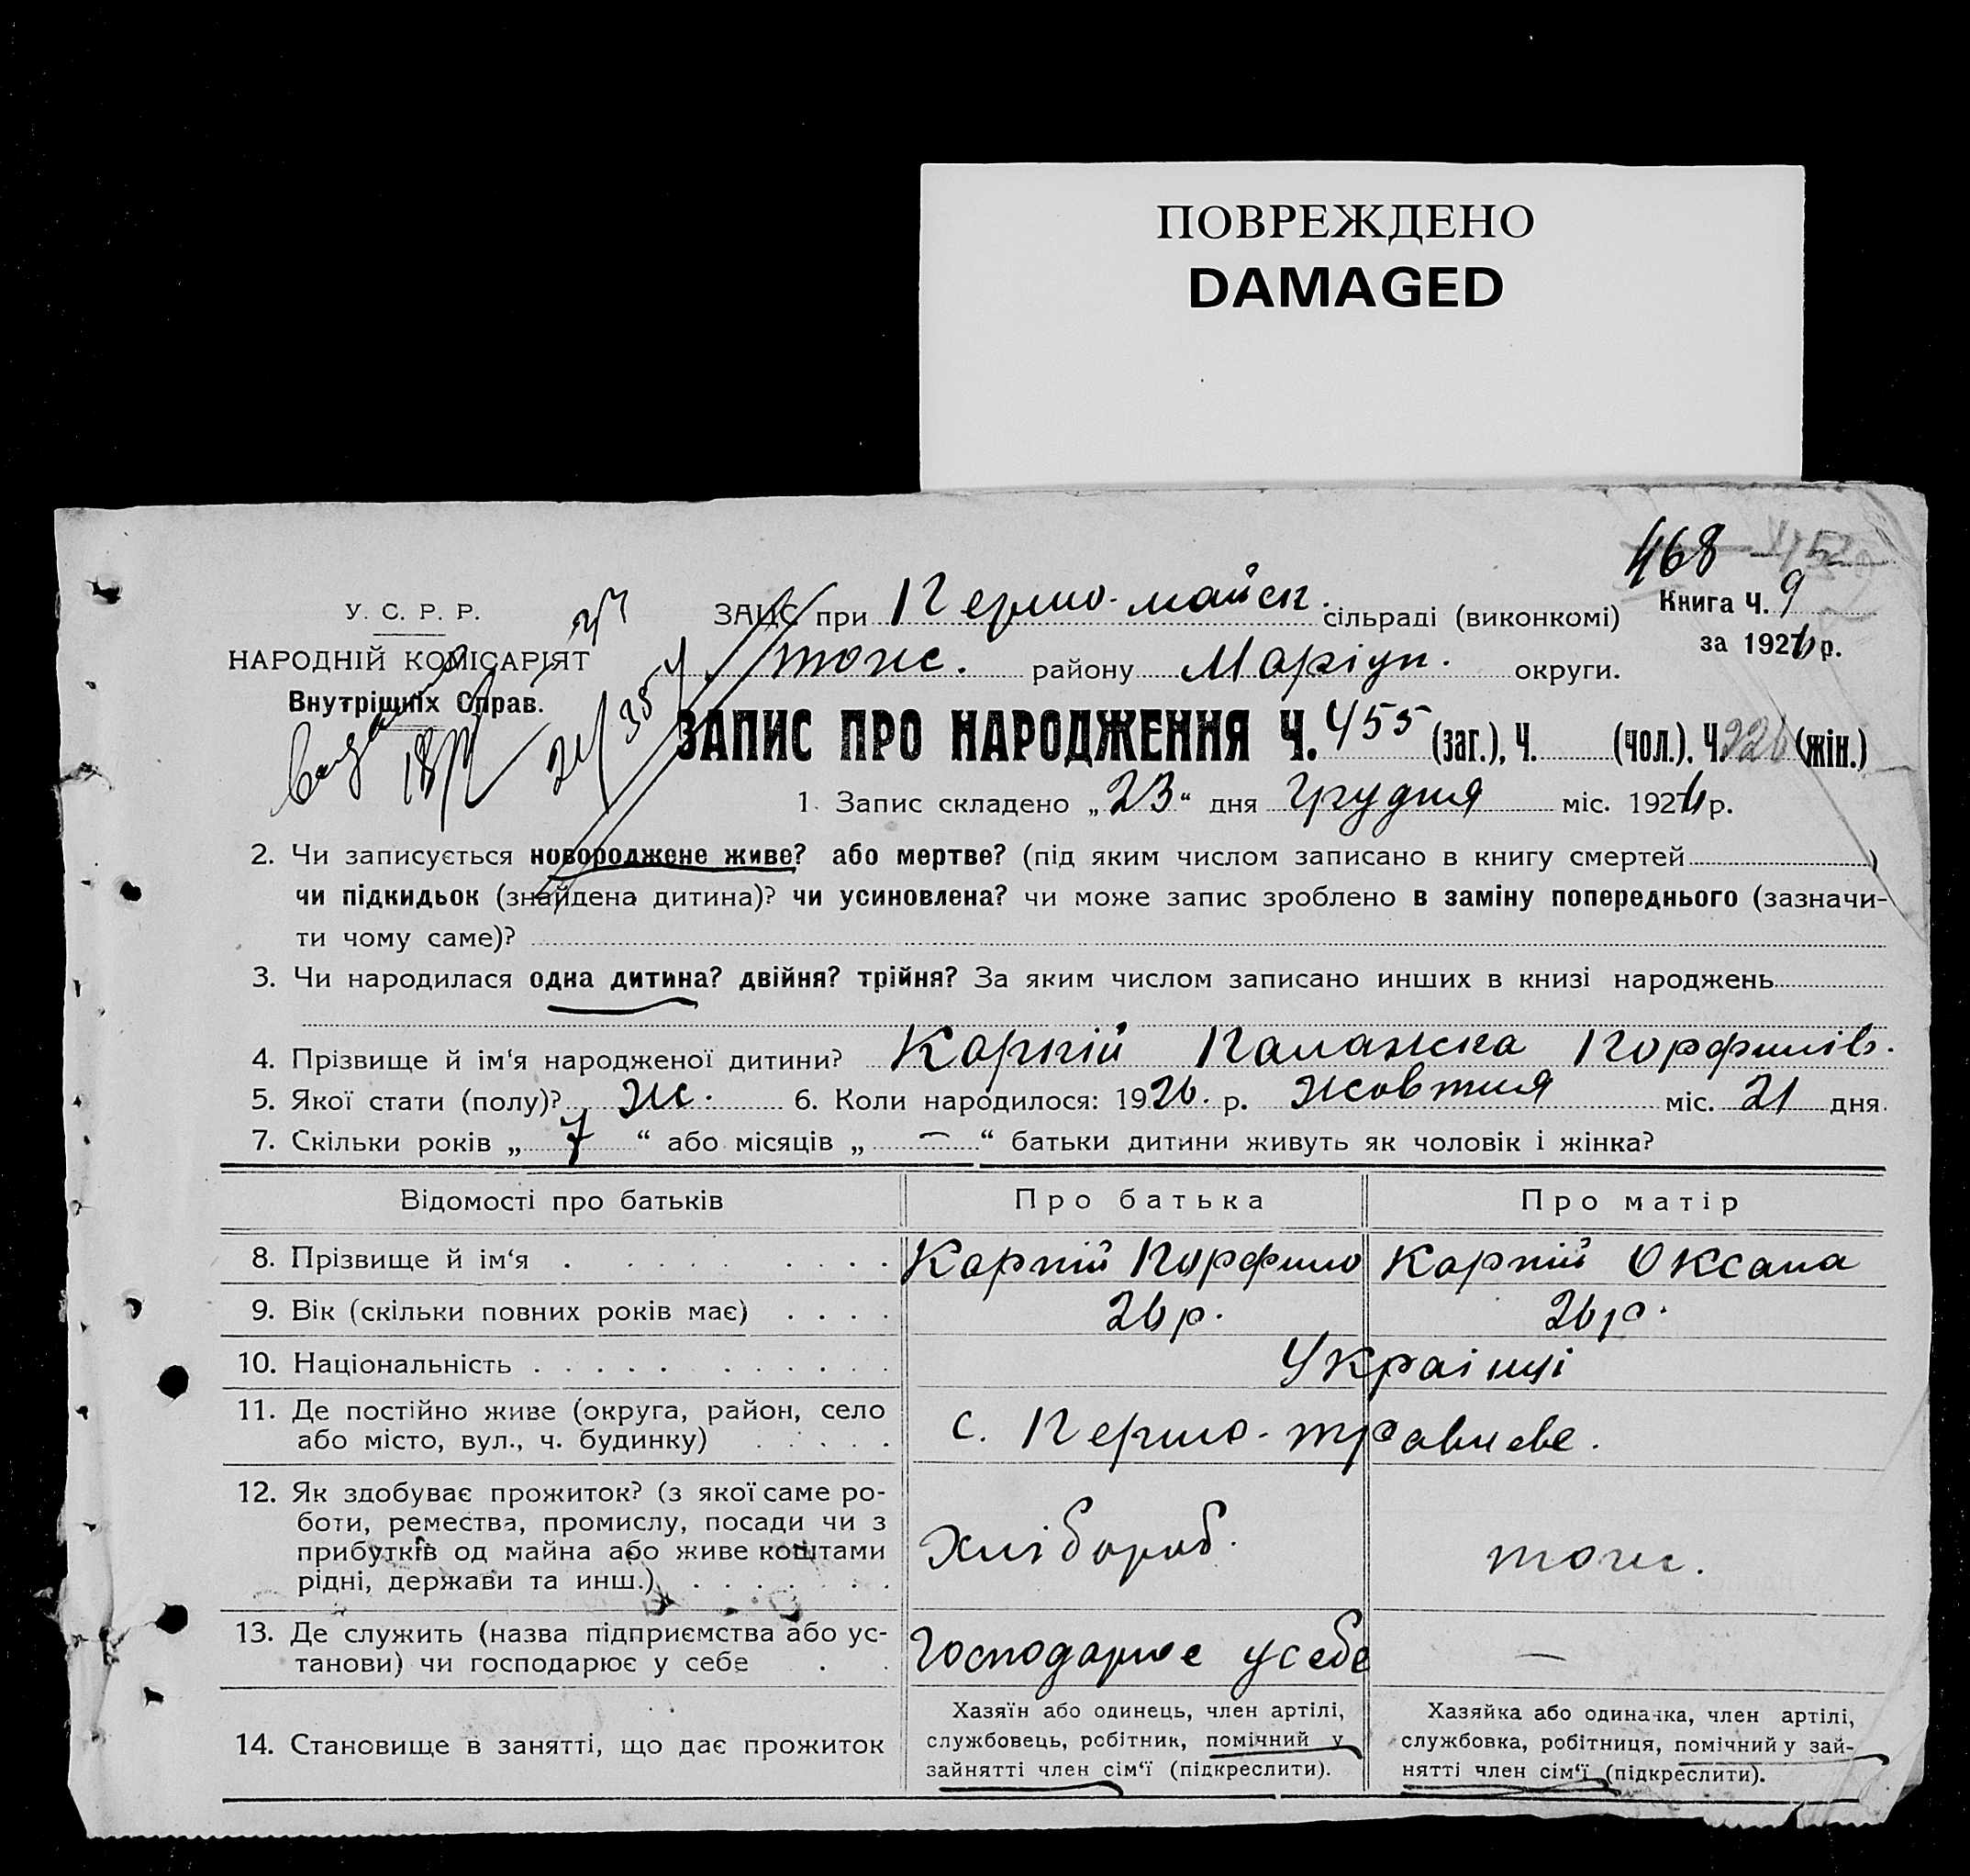 ПОВРЕЖДЕНО
DAMAGED
468
У. С. Р. Р.
НАРОДНІЙ КОМІСАРІЯТ
Внутрішніх Справ.
ЗАЦС при Першо-майськ. сільраді (виконкомі)
Книга Ч. 9
за 1926 р.
тонс. району Маріуп. округи.
ЗАПИС ПРО НАРОДЖЕННЯ Ч. 455 (заг.), Ч. (чол.). Ч. 226 (жін.)
1. Запис складено „23“ дня Грудня міс. 1926 р.
2. Чи записується новороджене живе? або мертве? (під яким числом записано в книгу смертей )
чи підкидьок (знайдена дитина)? чи усиновлена? чи може запис зроблено в заміну попереднього (зазначи-
ти чому саме)?
3. Чи народилася одна дитина? двійня? трійня? За яким числом записано инших в книзі народжень
4. Прізвище й ім‘я народженої дитини? Карпій Палажка Порфилів.
5. Якої стати (полу)? Ж. 6. Коли народилося: 1926. р. Жовтня міс. 21 дня
7. Скільки років „ 7 “ або місяців „ — “ батьки дитини живуть як чоловік і жінка?
Відомості про батьків Про батька Про матір
8. Прізвище й ім‘я Карпій Порфило Карпій Оксана
9. Вік (скільки повних років має) 26 р. 26 р.
10. Національність Українці
11. Де постійно живе (округа, район, село
або місто, вул., ч. будинку) с. Першо-травневе.
12. Як здобуває прожиток? (з якої саме ро-
боти, ремества, промислу, посади чи з
прибутків од майна або живе коштами
рідні, держави та инш.) Хлібороб. тонс.
13. Де служить (назва підприємства або ус-
танови) чи господарює у себе Господарює у себе —
14. Становище в занятті, що дає прожиток
Хазяїн або одинець, член артілі,
службовець, робітник, помічний у
зайнятті член сім‘ї (підкреслити).
Хазяйка або одиначка, член артілі,
службовка, робітниця, помічний у зай-
нятті член сім‘ї (підкреслити).